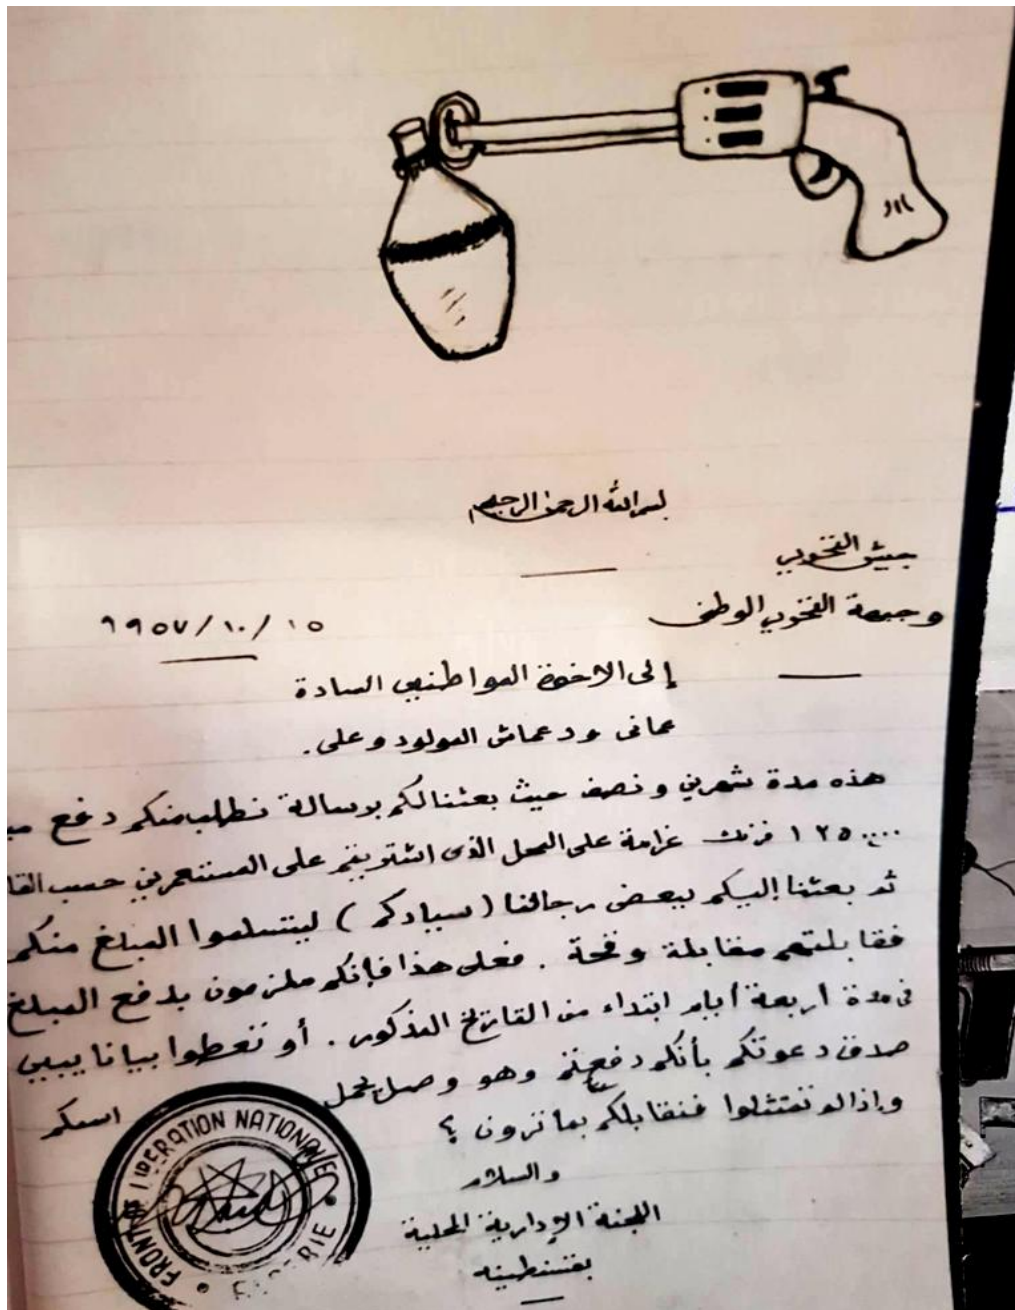 بسم الله الرحمن الرحيم
جيش التحرير
وجبهة التحرير الوطني
١٩٥٧/١٠/١٥
إلى الاخوة المواطنين السادة
عمانى ودعماش المولود وعلى.
هذه مدة شهرين ونصف حيث بعثنا لكم برسالة نطلب منكم دفع
١٢٥٠٠٠٠ فرنك غرامة على المحل الذى اشتريتم على المستعمرين حسب
ثم بعثنا إليكم ببعض رجالنا (سيادكم) ليتسلموا المبلغ منكم
فقابلتهم مقابلة وقحة. فعلى هذا فإنكم ملزمون بدفع المبلغ
فى مدة اربعة أيام ابتداء من التاريخ المذكور. أو تعطوا بيانا يبين
صدق دعوتكم بأنكم دفعتم وهو وصل يحمل اسمكم
وإذا لم تمتثلوا فنقابلكم بما ترون ؟
والسلام
اللجنة الإدارية المحلية
بقسنطينه
FRONT DE LIBERATION NATIONALE